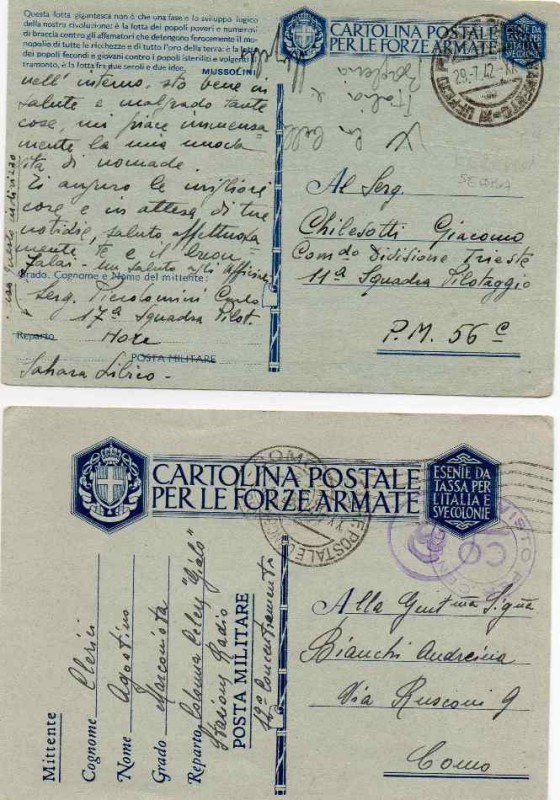 Questa lotta gigantesca non è che una fase e lo sviluppo logico
della nostra rivoluzione: è la lotta dei popoli poveri e numerosi
di braccia contro gli affamatori che detengono ferocemente il mo-
nopolio di tutte le ricchezze e di tutto l'oro della terra: è la lotta
dei popoli fecondi e giovani contro i popoli isteriliti e volgenti al
tramonto, è la lotta fra due secoli e due idee.
MUSSOLINI
nell'interno. sto bene in
salute e malgrado tante
cose, mi piace immensa-
mente la mia nuova
vita di nomade.
Ti auguro le migliori
cose e in attesa di tue
notizie, saluto affettuosa-
mente te e il buon
Un saluto agli
Grado, Cognome e Nome del mittente:
Serg. Piccolomini Carlo
17ª Squadra Pilot.
Reparto Hore
POSTA MILITARE
Sahara Libico.
CARTOLINA POSTALE
PER LE FORZE ARMATE
ESENTE DA
TASSA PER
L'ITALIA E
SVE COLONIE
29.7.42
Al Serg.
Chilesotti Giacomo
Comdo Divisione Trieste
11ª Squadra Pilotaggio
P.M. 56 c
CARTOLINA POSTALE
PER LE FORZE ARMATE
ESENTE DA
TASSA PER
L'ITALIA E
SVE COLONIE
Mittente
Cognome Clerici
Nome Agostino
Grado Marconista
Reparto Colonna Celere "Gialo"
Stazione Radio
POSTA MILITARE
12º Concentramento
Alla Gentma Signa
Bianchi Andreina
Via Rusconi 9
Como